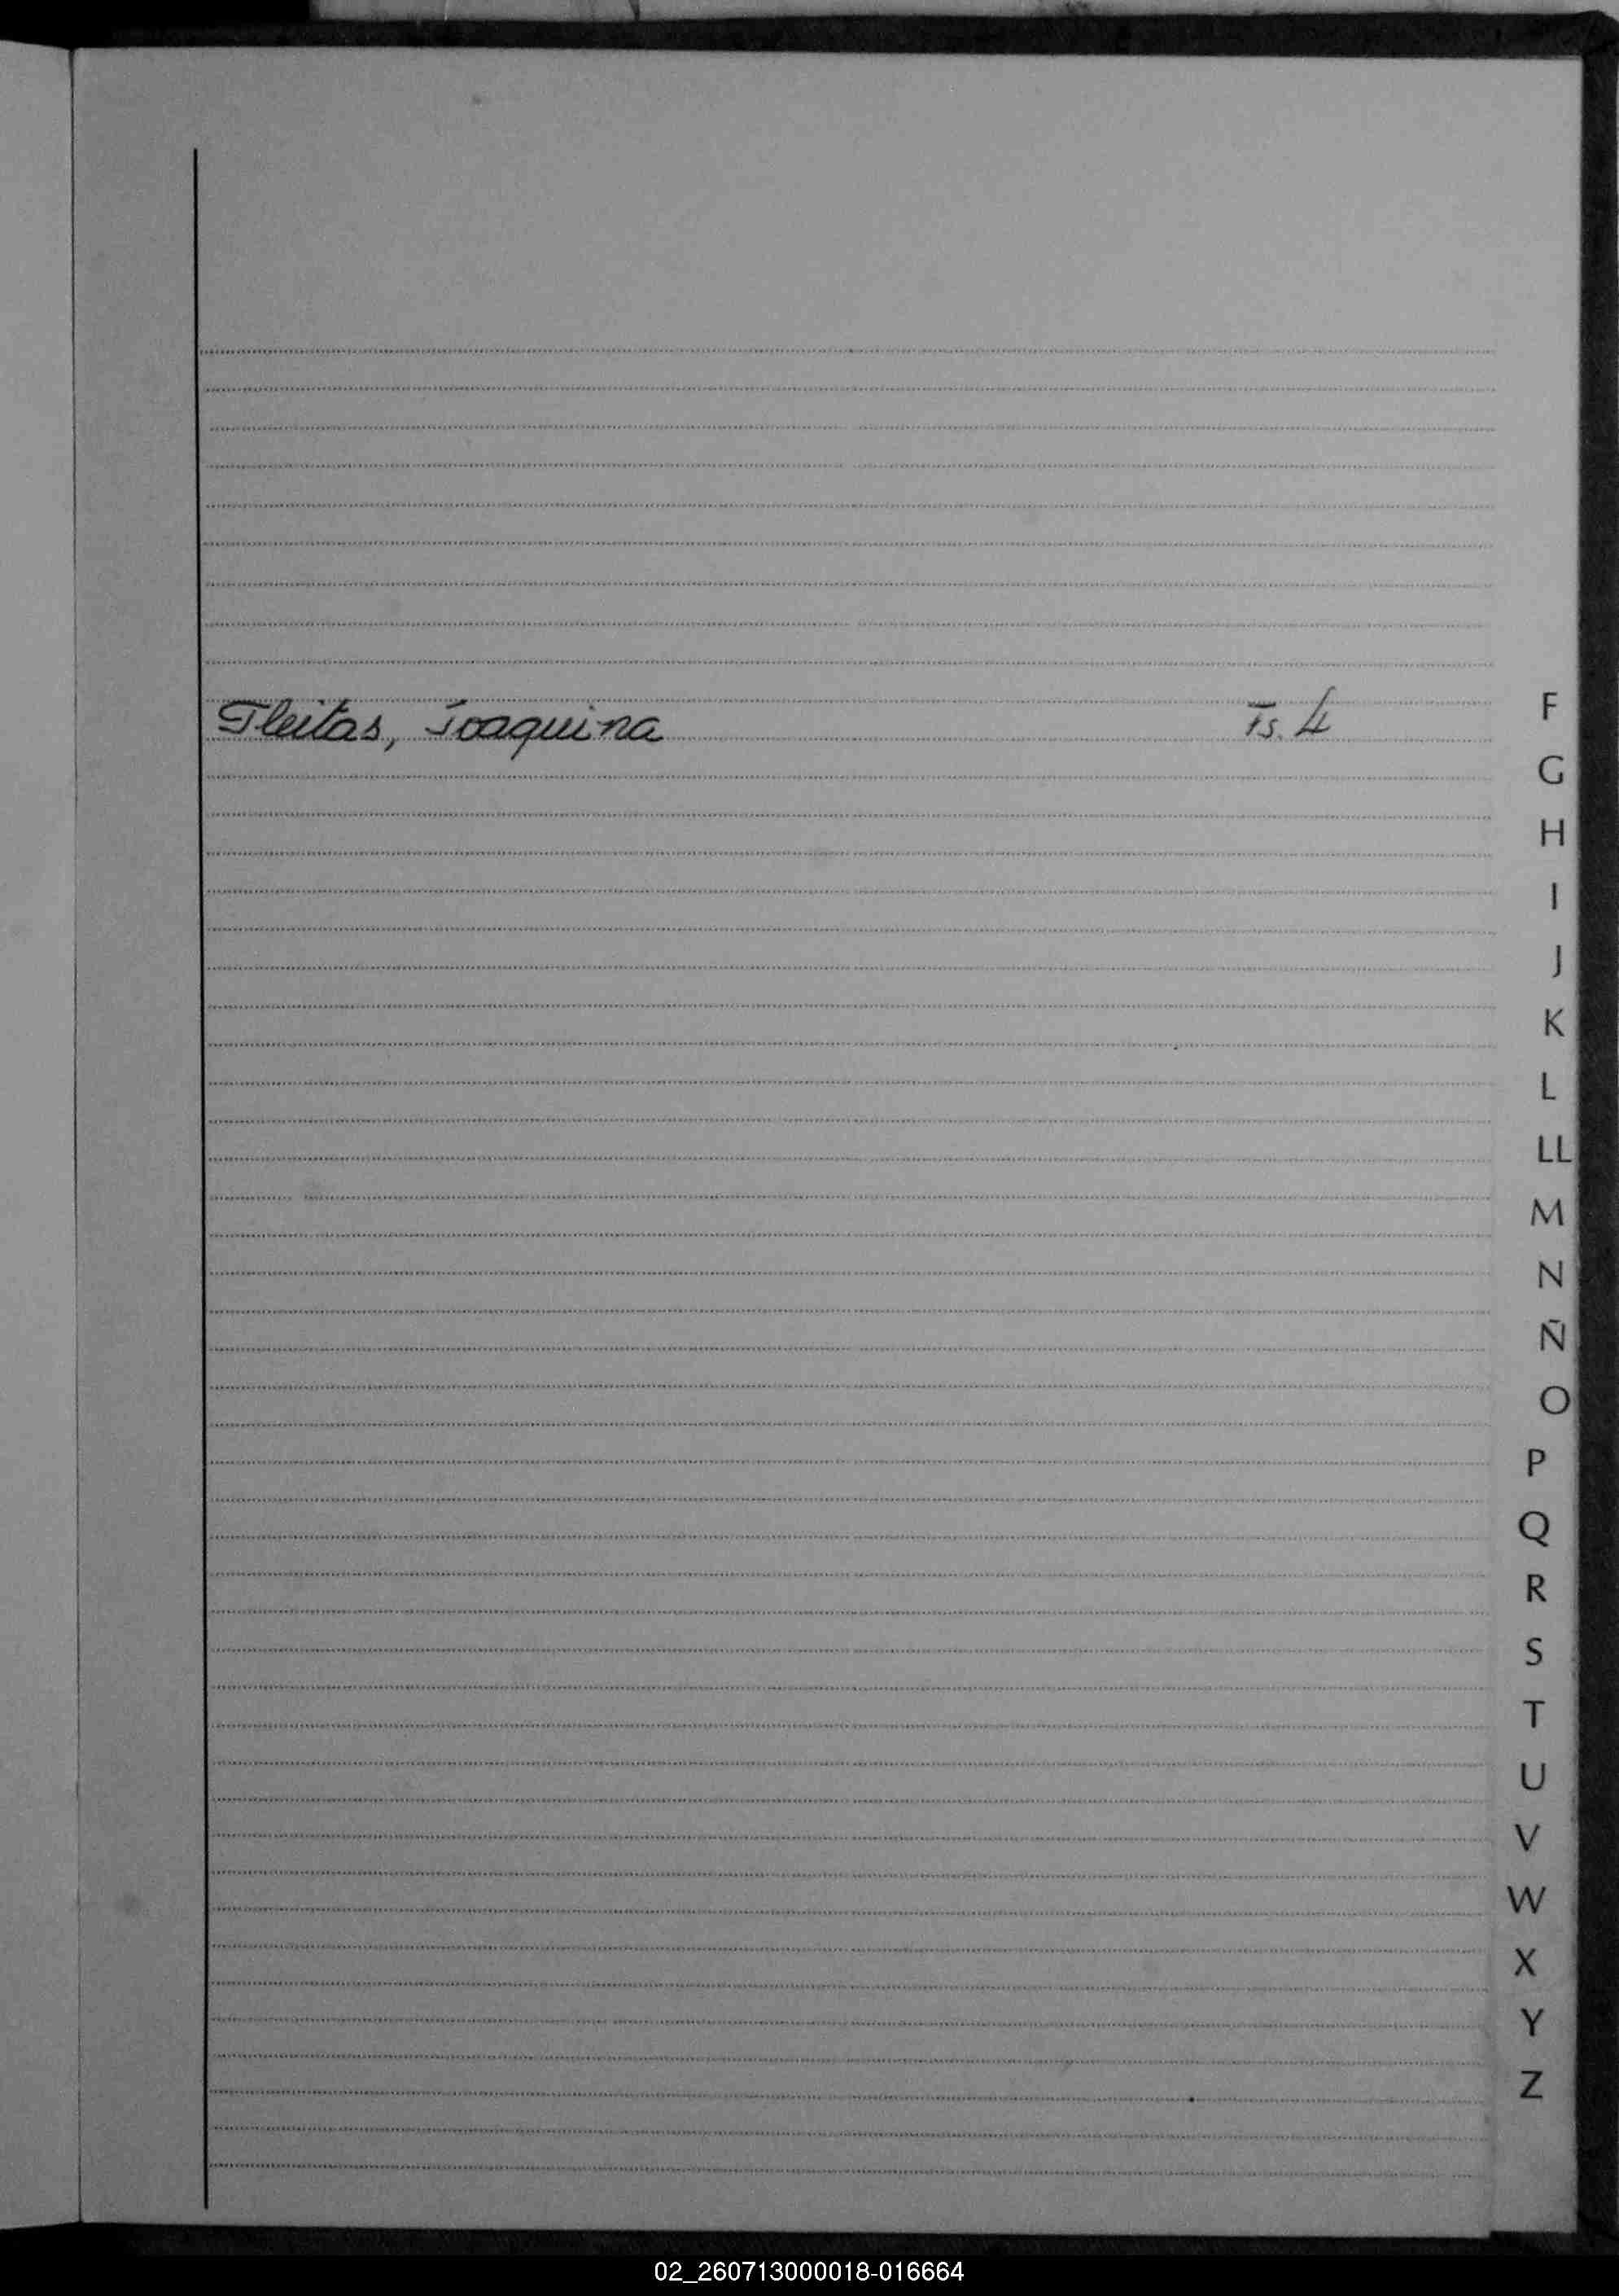 Fleitas, Joaquina Fs. 4
F
G
H
I
J
K
L
LL
M
N
Ñ
O
P
Q
R
S
T
U
V
W
X
Y
Z
02_260713000018-016664